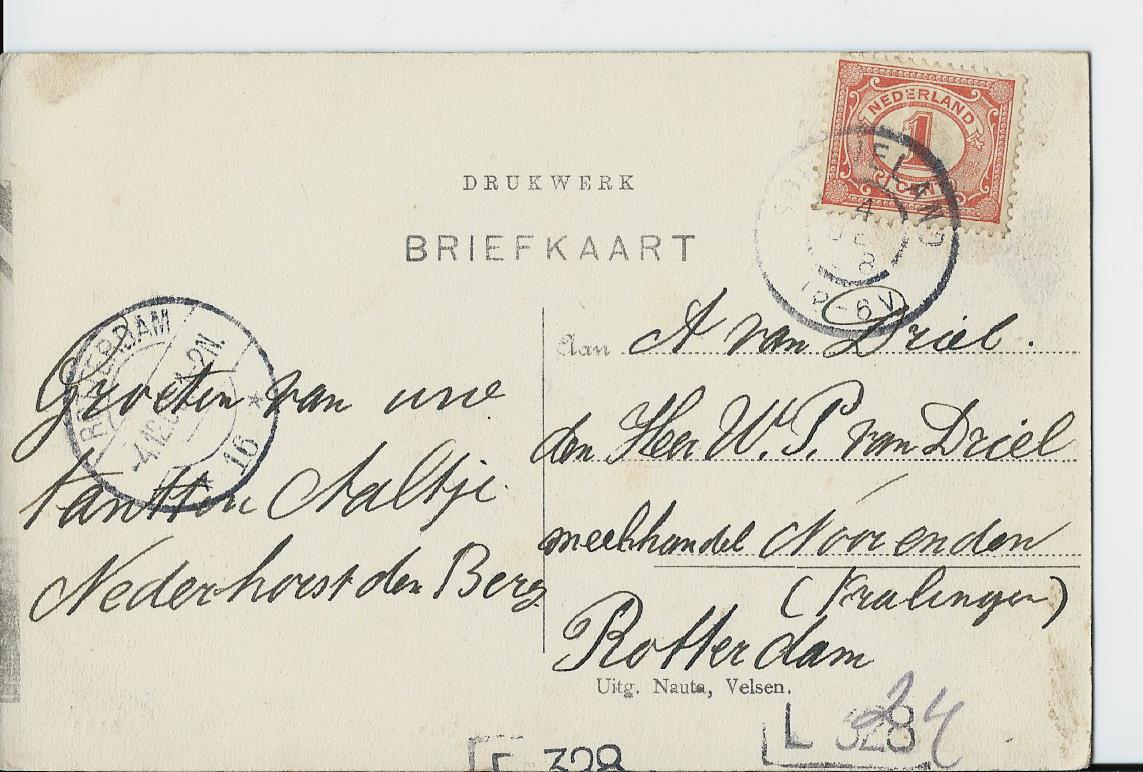 NEDERLAND
1
CENT
DRUKWERK
BRIEFKAART
4
8
6 V
ROTTERDAM
16
Groeten van uwe
Aaltje
Nederhorst den Berg
Aan A van Driel.
den Heer W. P. van Driel
meelhandel Noorenden
(Kralingen)
Rotterdam
Uitg. Nauta, Velsen.
24
L 328
328